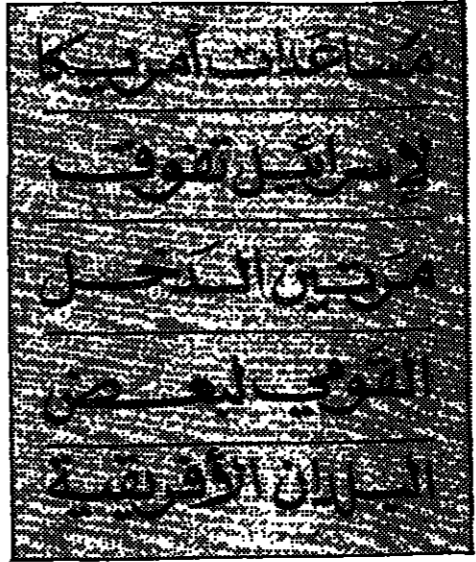 مساعدات أمريكا
لإسرائيل تفوق
مرتين الدخل
القومي لبعض
البلدان الأفريقية